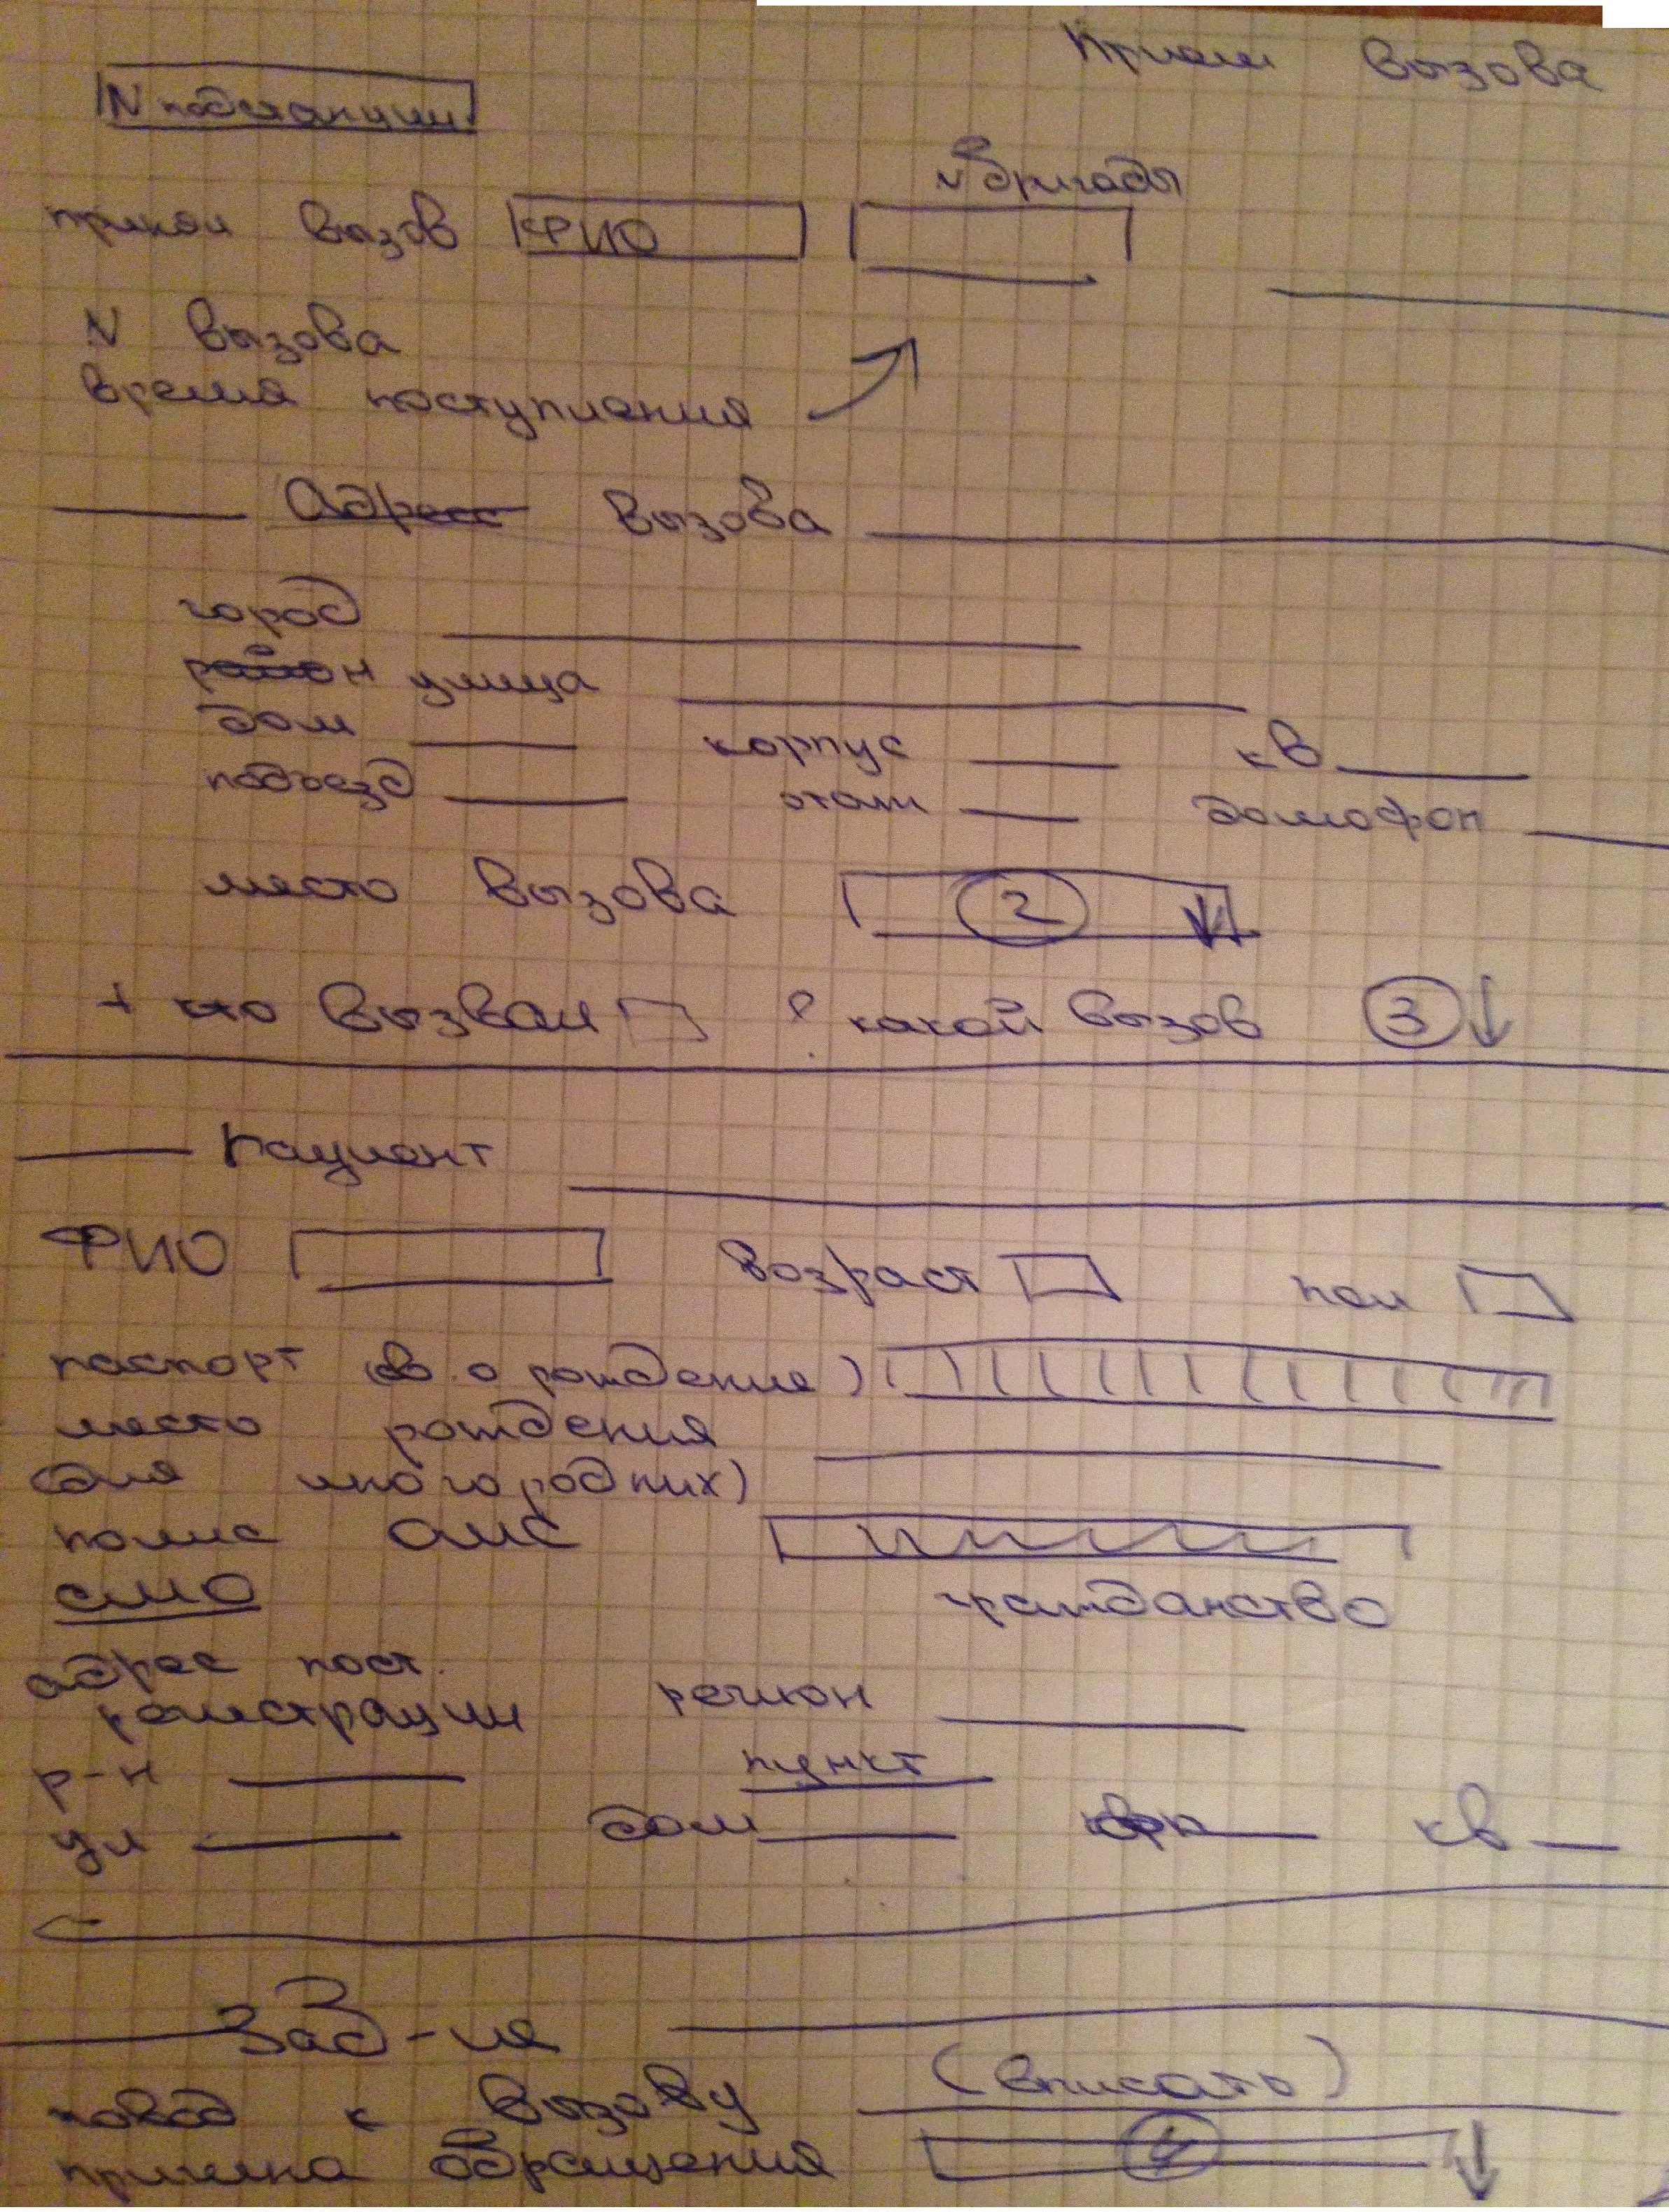 Прием вызова
N подстанции
N бригады
принял вызов ФИО
N вызова
время поступления
Адрес вызова
город
район улица
дом корпус кв
подъезд этаж домофон
место вызова 2
+ кто вызвал ? какой вызов 3
Пациент
ФИО возраст пол
паспорт (св. о рождение)
место рождения
(для иногородних)
полис ОМС
СМО гражданство
адрес пост.
регистрации регион
р-н пункт
ул дом кв
Заб-ия
(вписать)
повод к вызову
причина обращения 4